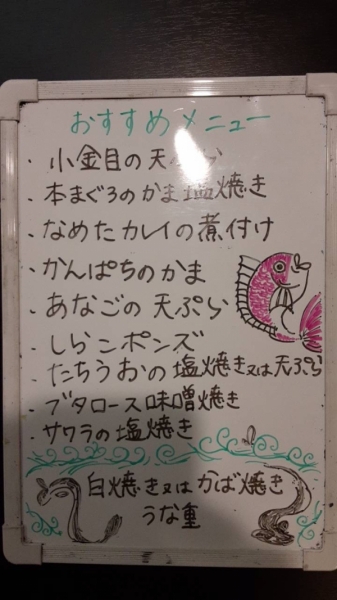 おすすめメニュー
・小金目の天ぷら
・本まぐろのかま塩焼き
・なめたカレイの煮付け
・かんぱちのかま
・あなごの天ぷら
・しらこポンズ
・たちうおの塩焼き又は天ぷら
・ブタロース味噌焼き
・サワラの塩焼き
白焼き又はかば焼き
うな重